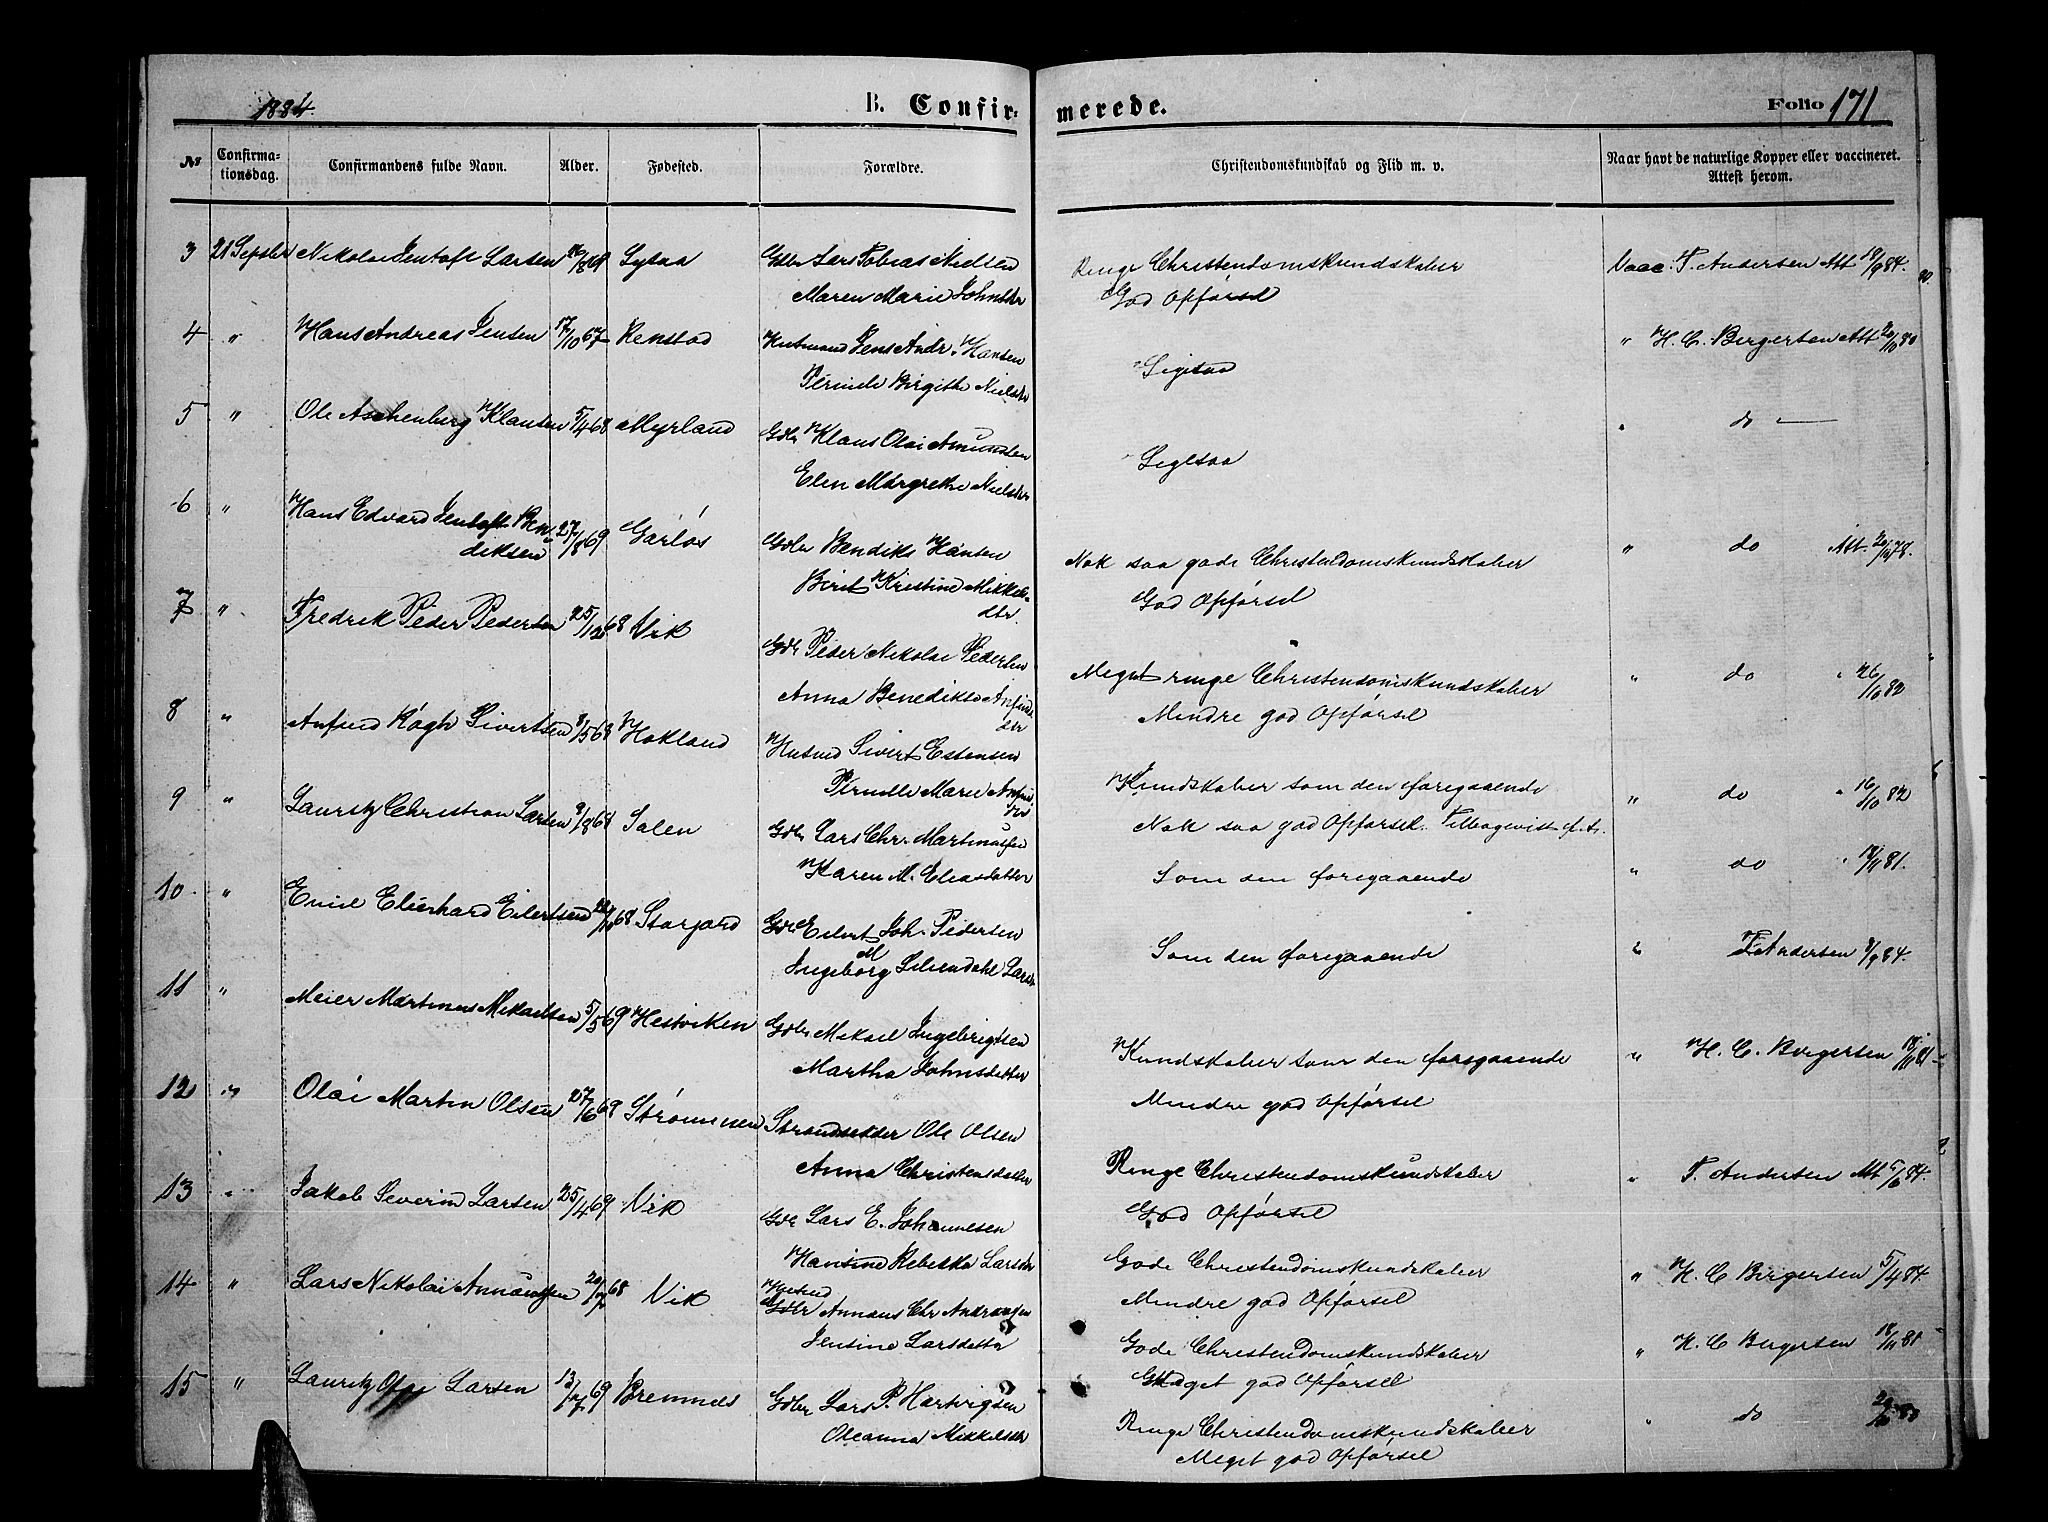 1884.
B. Confirmerede.
Folio 171
No
Confirmationsdag.
Confirmandens fulde Navn.
Alder.
Fødested.
Forældre.
Christendomskundskab og Flid m. v.
Naar havt de naturlige Kopper eller vaccineret.
Attest herom.
3 21 Septbr Nikolai Jentoft Larsen /8 69 Gbr Lars Tobias Nielsen
Maren Marie Johnsdtr
Ringe Christendomskundskaber
God Opførsel
Vacc. T. Andersen Att 18/9 84.
4 " Hans Andreas Jensen 17/10 67 Renstad Husmand Jens Andr. Hansen
Pernele Birgithe Nielsdtr
Ligesaa
" H. C. Birgersen Att 20/10 80
5 " Ole Aschenberg Klausen 5/4 68 Myrland Gbr Klaus Olai Amundsen
Elen Margrethe Nielsdtr
Ligesaa
" do —
6 " Hans Edvard Jentoft Bendiksen 27/8 69 Garløs Gbr Bendiks Hansen
Birit Kristine Mikkelsdtr.
Nok saa gode Christendomskundskaber
God Opførsel
" do Att. 20/10 78.
7 " Fredrik Peder Pedersen 25/12 68 Vik Gbr Peder Nikolai Pedersen
Anna Benedikte Anfindsdtr
Meget ringe Christendomskundskaber
Mindre god Opførsel
" do " 26/10 82
8 " Anfind Røgh Sivertsen 3/5 68 Hokland Husmd Sivert Estensen
Pernelle Marie Anfindsdtr
Kundskaber som den foregaaende
Nok saa god Opførsel. Tilbagevist f. A.
" do " 16/10 82
9 " Lauritz Christian Larsen 9/8 68 Salen Gbr Lars Chr. Martinussen
Karen M. Eliasdatter
Som den foregaaende
" do " 18/11 81.
10 " Emil Eberhard Eilertsen 68 Storjord Gbr Eilert Joh. Pedersen
Ingeborg M Liliendahl Larsdtr
Som den foregaaende
" T. Andersen 8/9 84.
11 " Meier Martinus Mikaelsen 5/5 69 Hestviken Gbr Mikael Ingebrigtsen
Martha Johnsdatter
Kundskaber som den foregaaende
Mindre god Opførsel
" H. C. Birgersen 18/11 81
12 " Olai Martin Olsen 27/6 68 Strømmen Strandsidder Ole Olsen
Anna Christensdatter
Ringe Christendomskundskaber
God Opførsel
" T. Andersen Att 5/6 84.
13 " Jakob Severin Larsen 25/4 69 Vik Gbr Lars E. Johannesen
Hansine Rebekka Larsdtr
Gode Christendomskundskaber
Mindre god Opførsel
" H. C Birgersen 5/4 84.
14 " Lars Nikolai Annaussen 20/7 68 Vik Husmd
Gbr Annaus Chr Andreassen
Jensine Larsdatter
Gode Christendomskundskaber
Meget god Opførsel
" H. C Birgersen 18/11 81
15 " Lauritz Olai Larsen 13/7 69 Bremnes Gbr Lars P. Hartvigsen
Oleanna Mikkelsdtr
Ringe Christendomskundskaber
Meget god Opførsel
" do